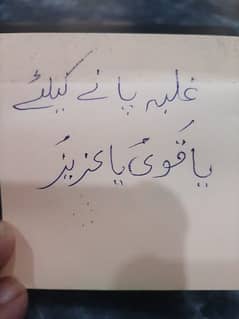 غلبہ پانے کیلئے
یا قویُ یا عزیزُ